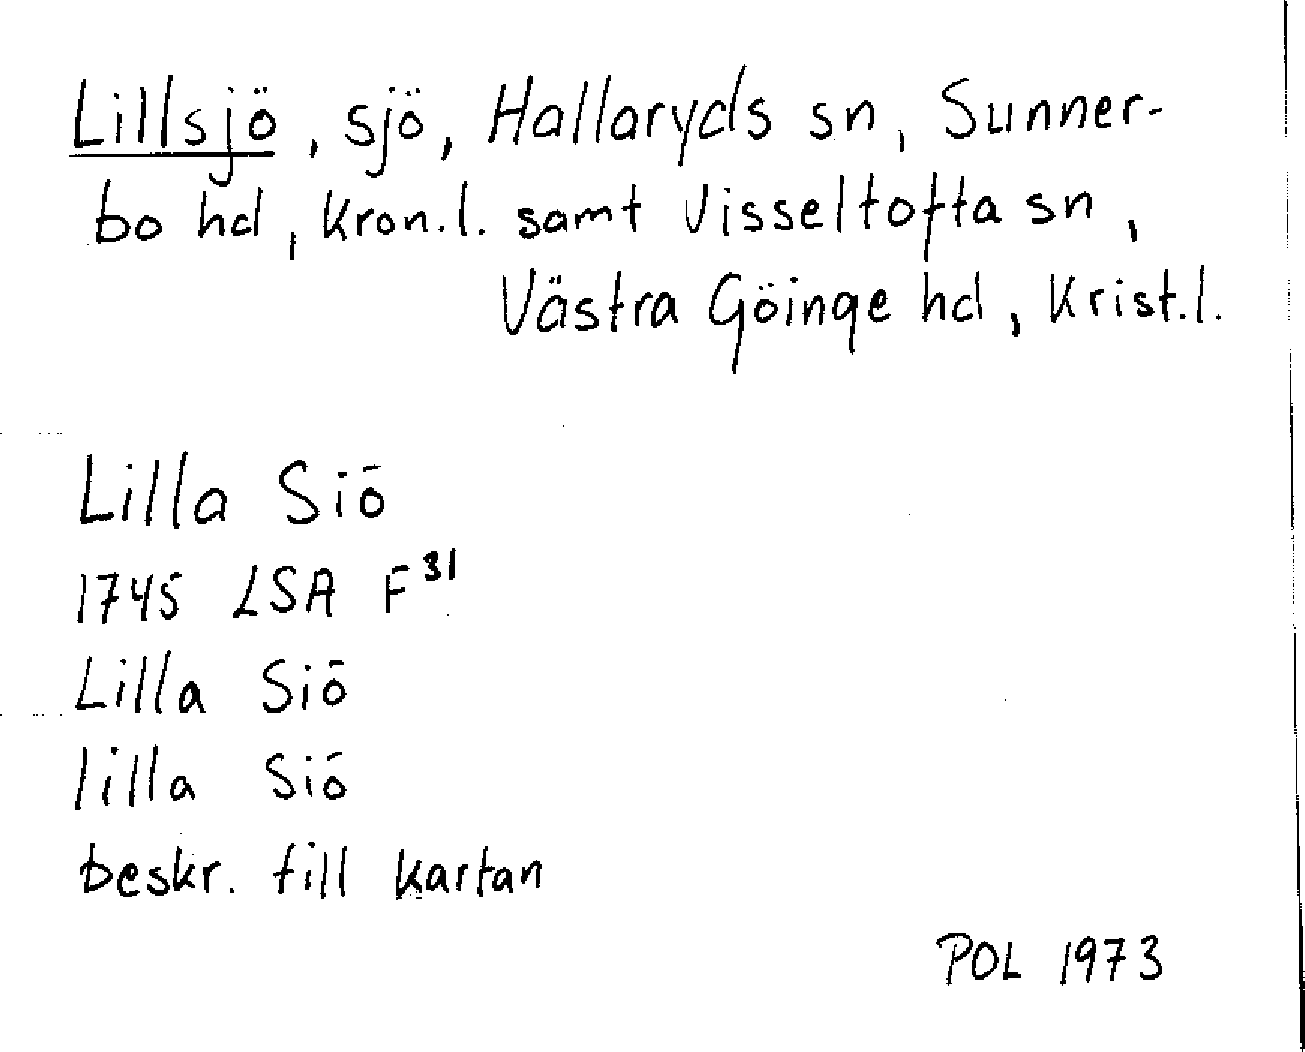 Lillsjö, sjö, Hallaryds sn, Sunner-
bo hd, Kron.l. samt Visseltofta sn,
Västra Göinge hd, Krist.l.
Lilla Siö
1745 LSA F³¹
Lilla Siö
lilla Siö
beskr. till kartan
POL 1973